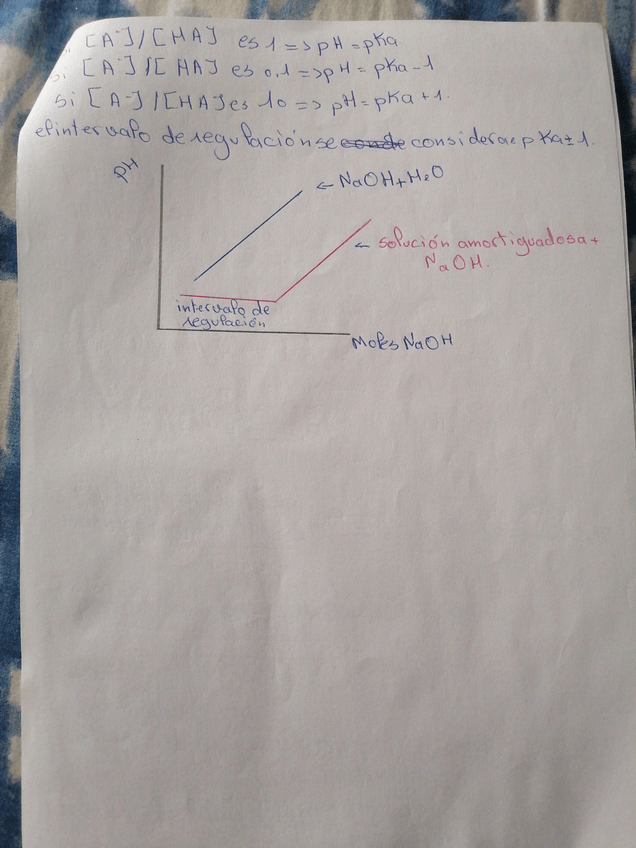 [A⁻]/[HA] es 1 => pH = pKa
si [A⁻]/[HA] es 0,1 => pH = pKa - 1
si [A⁻]/[HA] es 10 => pH = pKa + 1.
el intervalo de regulación se considerar pKa ± 1.
pH
← NaOH + H₂O
← solución amortiguadosa +
NaOH.
intervalo de
regulación
Moles NaOH